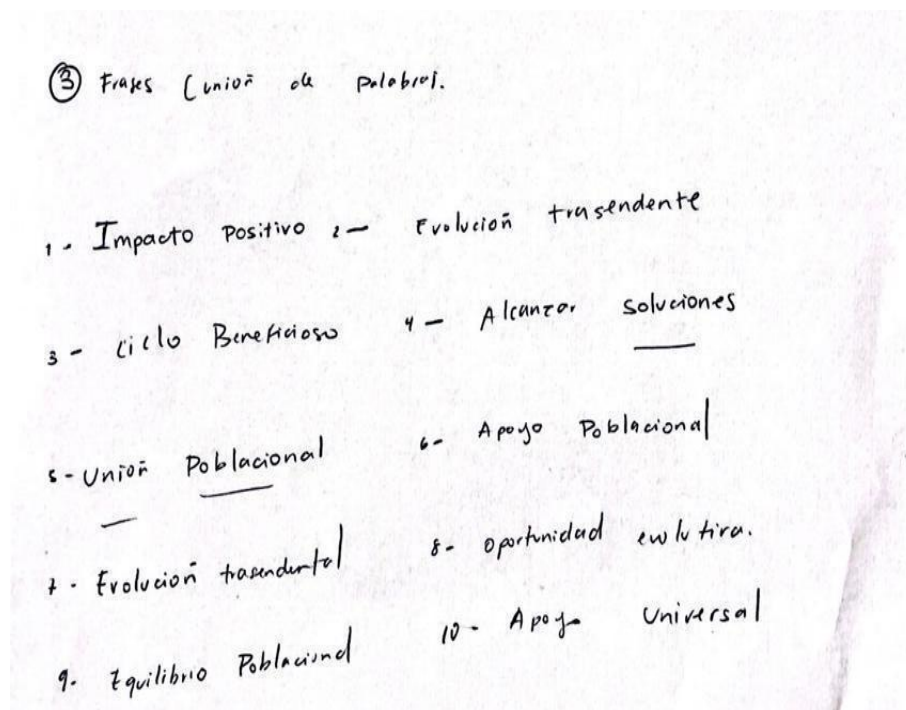 ③ Frases (unión de palabras).
1- Impacto Positivo 2- Evolución trasendente
3- Ciclo Beneficioso 4- Alcanzar soluciones
5- Unión Poblacional 6- Apoyo Poblacional
7- Evolución trasendental 8- oportunidad evolutiva.
9- Equilibrio Poblacional 10- Apoyo Universal